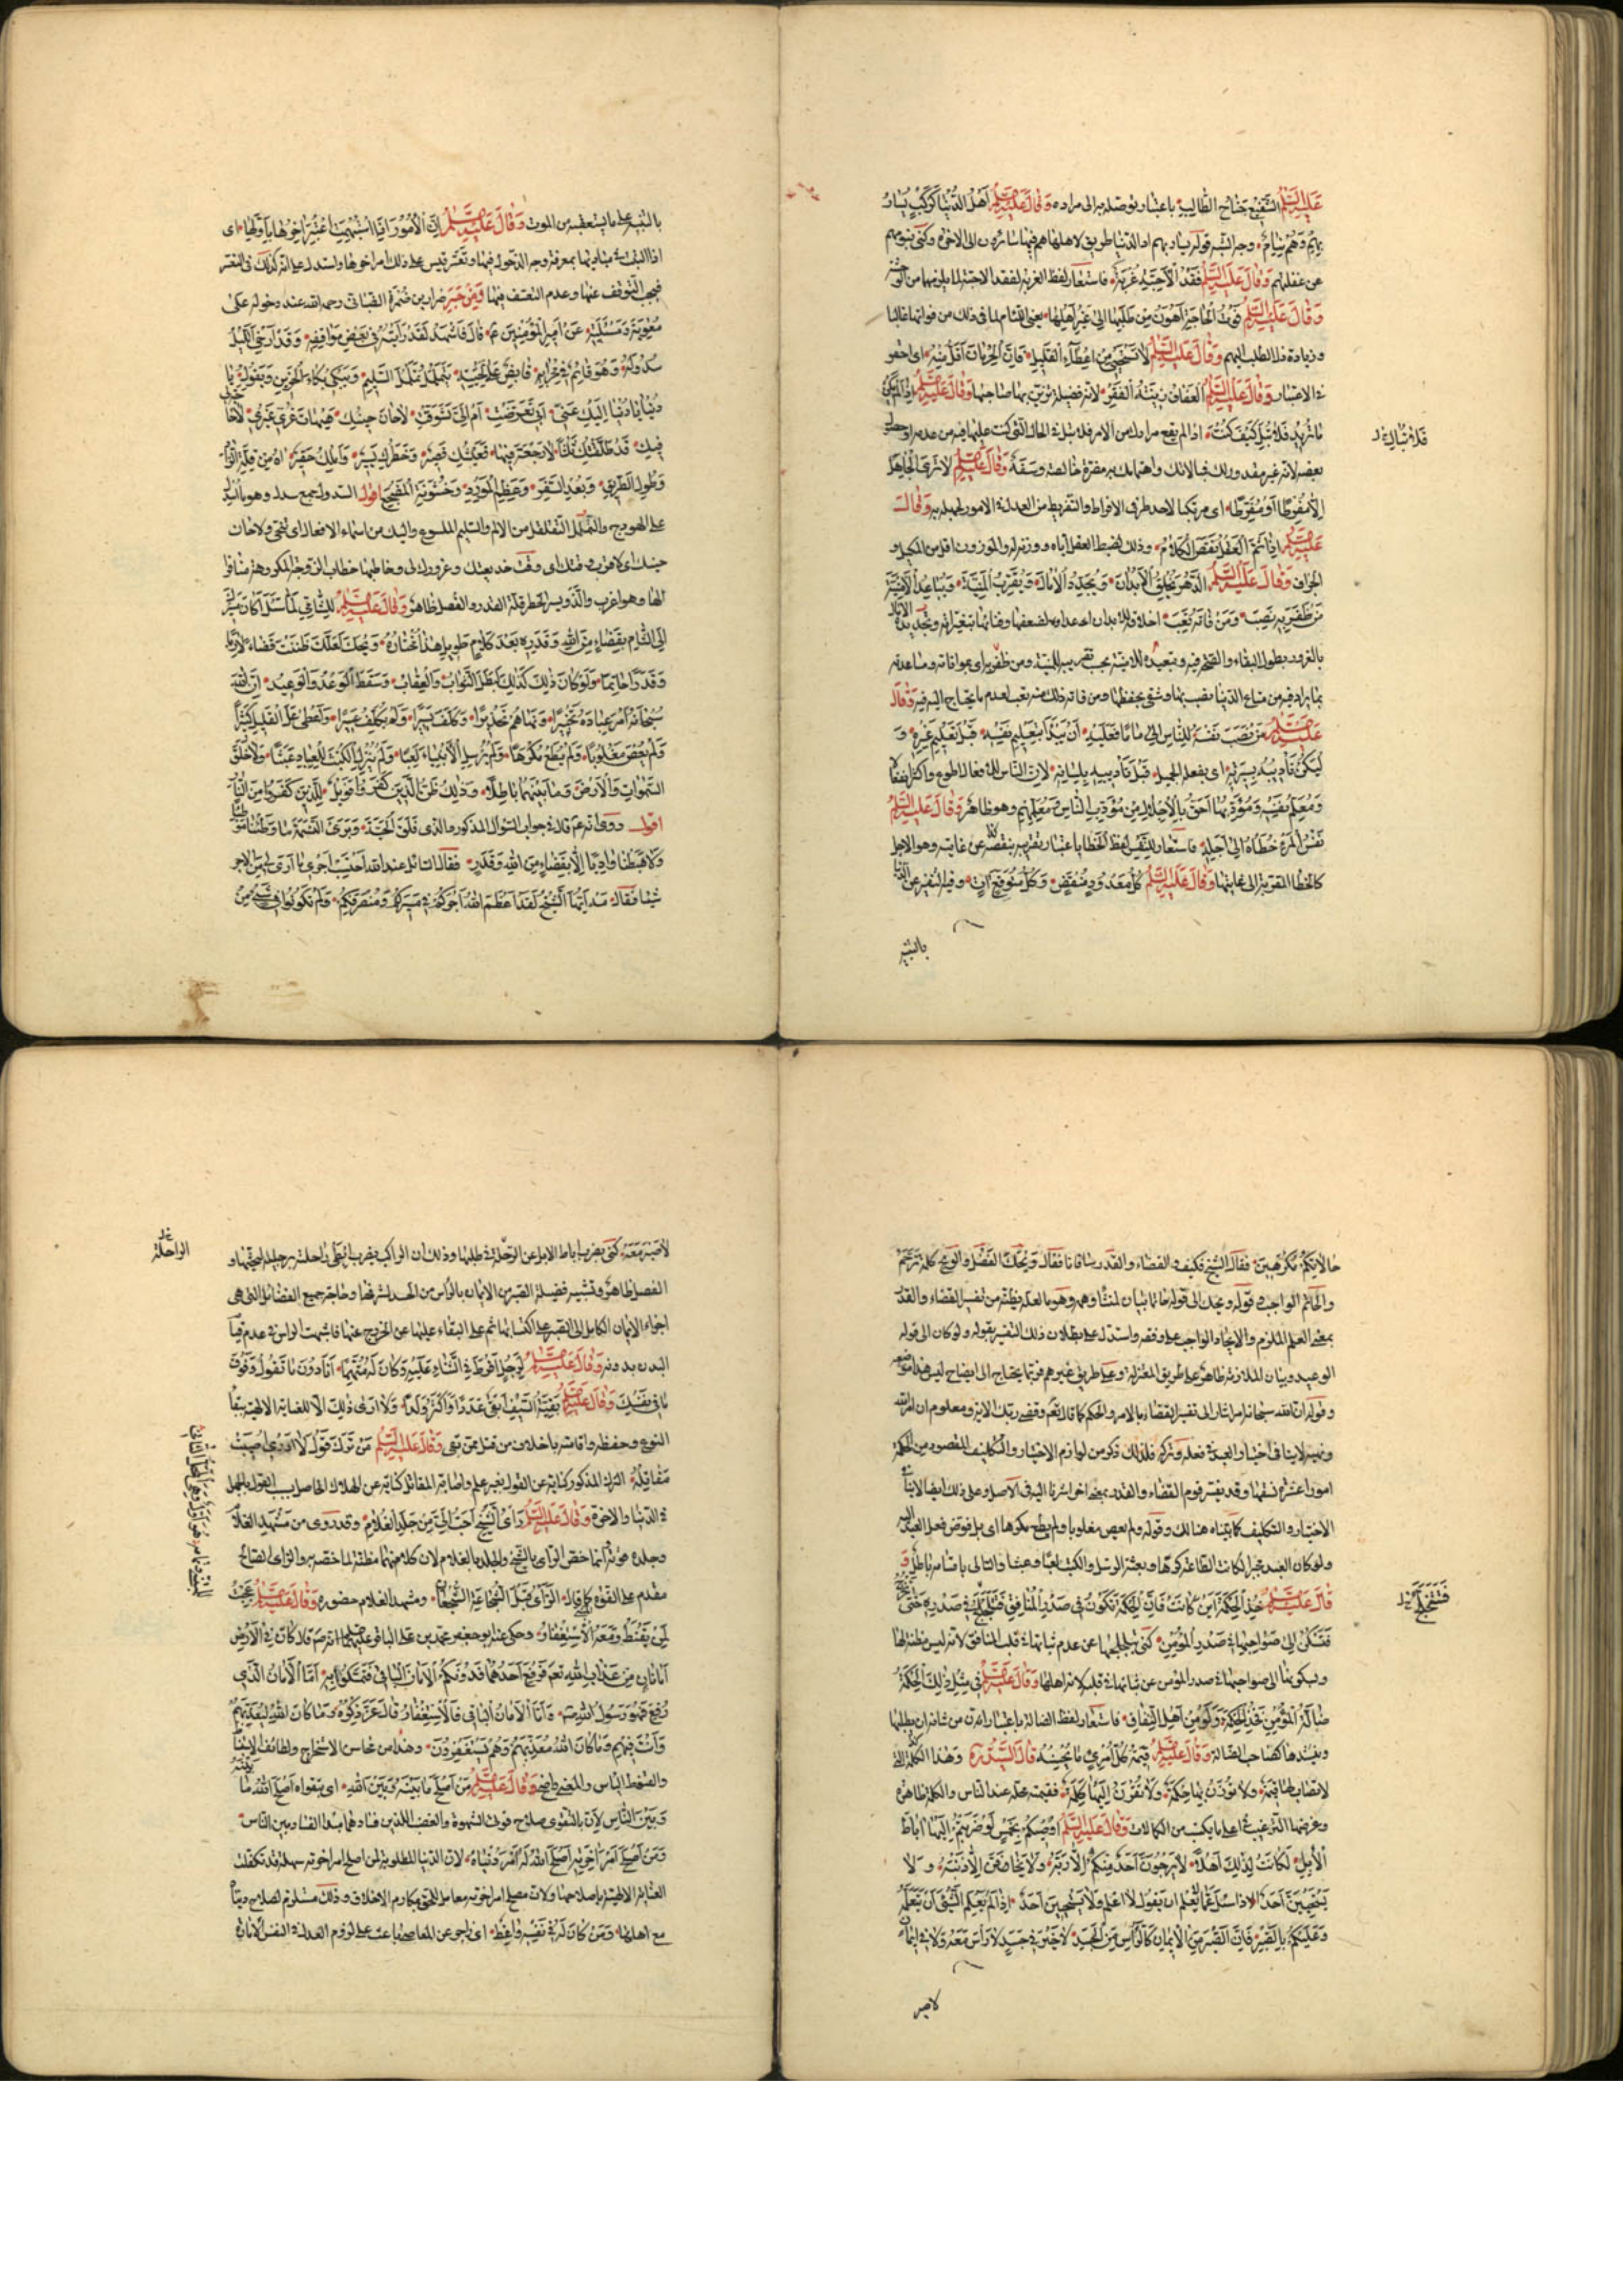 عَلَيْهِ السَّلَمُ الشَّفِيعُ جَنَاحُ الطَّالِبِ باعتبار توصله به الى مراده وَقَالَ عَلَيْهِ السَّلَمُ اَهْلُ الدُّنْيَا كَرَكْبٍ يُسَارُ
بِهِمْ وَهُمْ نِيَامٌ وجه الشبه قوله يسار بهم اذ الدنيا طريق لاهلها هم فيها سائرون الى الاخرة وكنى بنومهم
عن غفلتهم وَقَالَ عَلَيْهِ السَّلَمُ فَقْدُ الْاَحِبَّةِ غُرْبَةٌ فاستعار لفظ الغربة لفقد الاحبة لما يلزمهما من الوحشة
وَقَالَ عَلَيْهِ السَّلَمُ فَوْتُ الْحَاجَةِ اَهْوَنُ مِنْ طَلَبِهَا اِلَى غَيْرِ اَهْلِهَا يعنى اللئام لما فى ذلك من فواتها غالبا
وزيادة ذل الطلب اليهم وَقَالَ عَلَيْهِ السَّلَمُ لَا تَسْتَحْيِ مِنْ اِعْطَاءِ الْقَلِيلِ فَاِنَّ الْحِرْمَانَ اَقَلُّ مِنْهُ اى احقر
فى الاعتبار وَقَالَ عَلَيْهِ السَّلَمُ الْعَفَافُ زِينَةُ الْفَقْرِ لانه فضيلة تزين بها صاحبها وَقَالَ عَلَيْهِ السَّلَمُ اِذَا لَمْ يَكُنْ
مَا تُرِيدُ فَلَا تُبَلْ كَيْفَ كُنْتَ اذا لم يقع مرادك من الامر فلا تبل فى الحال التى كنت عليها فيه من عدمه او حصول
فَلَا تُبَالِ
بعضه لانه غير مقدور لك فبالاتك واهتمامك به مضرة خالصة وسفه وَقَالَ عَلَيْهِ السَّلَمُ لَا تَرَى الْجَاهِلَ
اِلَّا مُفْرِطًا اَوْ مُفَرِّطًا اى مرتكبا لاحد طرفى الافراط والتفريط من العدل فى الامور لجهله به وَقَالَ
عَلَيْهِ السَّلَمُ اِذَا تَمَّ الْعَقْلُ نَقَصَ الْكَلَامُ وذلك لضبط العقل اياه ووزنه له والموزون اقل من المكيل و
الجزاف وَقَالَ عَلَيْهِ السَّلَمُ الدَّهْرُ يُخْلِقُ الْاَبْدَانَ وَيُجَدِّدُ الْاٰمَالَ وَيُقَرِّبُ الْمَنِيَّةَ وَيُبَاعِدُ الْاُمْنِيَّةَ
مَنْ ظَفِرَ بِهِ نَصِبَ وَمَنْ فَاتَهُ تَعِبَ اخلاقه للابدان اعداده لضعفها وفنائها بتغيراته وتجديده الامال
بالغرور بطول البقاء والصحة فيه وتبعيده للامنية بحسب تقريبه للمنية ومن ظفر به اى بموافاته ومساعدته
بما يراد فيه من متاع الدنيا نصب بها وشقى بحفظها ومن فاته ذلك منه تعب لعدم ما يحتاج اليه فيه وَقَالَ
عَلَيْهِ السَّلَمُ مَنْ نَصَبَ نَفْسَهُ لِلنَّاسِ اِمَامًا فَعَلَيْهِ اَنْ يَبْدَأَ بِتَعْلِيمِ نَفْسِهِ قَبْلَ تَعْلِيمِ غَيْرِهِ وَ
لْيَكُنْ تَأْدِيبُهُ بِسِيرَتِهِ اى بفعل الجميل قَبْلَ تَأْدِيبِهِ بِلِسَانِهِ لان الناس للافعال اطوع واكثر انفعالا
وَمُعَلِّمُ نَفْسِهِ وَمُؤَدِّبُهَا اَحَقُّ بِالْاِجْلَالِ مِنْ مُؤَدِّبِ النَّاسِ وَمُعَلِّمِهِمْ وهو ظاهر وَقَالَ عَلَيْهِ السَّلَمُ
نَفَسُ الْمَرْءِ خُطَاهُ اِلَى اَجَلِهِ فاستعار للنفس لفظ الخطا باعتبار تقريبه بنقصه عن غايته وهو الاجل
كالخطا المقربة الى غايتها وَقَالَ عَلَيْهِ السَّلَمُ كُلُّ مَعْدُودٍ مُنْقَضٍ وَكُلُّ مُتَوَقَّعٍ اٰتٍ وفيه التنفير عن الدنيا
بالتنبيه
بالتنبيه على ما يستعقبه من الموت وَقَالَ عَلَيْهِ السَّلَمُ اِنَّ الْاُمُورَ اِذَا اشْتَبَهَتْ اعْتُبِرَ اٰخِرُهَا بِاَوَّلِهَا اى
فيجب التوقف عنها وعدم التعسف فيها وَمِنْ خَبَرِ ضرار بن ضمرة الضبائى رحمه الله عند دخوله على
مُعٰوِيَةَ وَمَسْئَلَتِهِ عَنْ اَمِيرِ الْمُؤْمِنِينَ ع قَالَ فَاَشْهَدُ لَقَدْ رَاَيْتُهُ فِى بَعْضِ مَوَاقِفِهِ وَقَدْ اَرْخَى اللَّيْلُ
سُدُولَهُ وَهُوَ قَائِمٌ فِى مِحْرَابِهِ قَابِضٌ عَلَى لِحْيَتِهِ يَتَمَلْمَلُ تَمَلْمُلَ السَّلِيمِ وَيَبْكِى بُكَاءَ الْحَزِينِ وَيَقُولُ يَا
دُنْيَا يَا دُنْيَا اِلَيْكِ عَنِّى اَبِى تَعَرَّضْتِ اَمْ اِلَىَّ تَشَوَّقْتِ لَا حَانَ حِينُكِ هَيْهَاتَ غُرِّى غَيْرِى لَا حَاجَةَ لِى
فِيكِ قَدْ طَلَّقْتُكِ ثَلٰثًا لَا رَجْعَةَ فِيهَا فَعَيْشُكِ قَصِيرٌ وَخَطَرُكِ يَسِيرٌ وَاَمَلُكِ حَقِيرٌ اٰهِ مِنْ قِلَّةِ الزَّادِ
وَطُولِ الطَّرِيقِ وَبُعْدِ السَّفَرِ وَعَظِيمِ الْمَوْرِدِ وَخُشُونَةِ الْمَضْجَعِ اقول السدول جمع سدل وهو ما اسبل
على الهودج والتململ التقلقل من الالم والسليم الملسوع واليك من اسماء الافعال اى تنحى ولا حان
لها وهو اغرب والذ ويسير الخطر قلة القدر والفصل ظاهر وَقَالَ عَلَيْهِ السَّلَمُ لِلشَّامِىِّ لَمَّا سَئَلَهُ اَكَانَ مَسِيرُنَا
اِلَى الشَّامِ بِقَضَاءٍ مِنَ اللهِ وَقَدَرِهِ بَعْدَ كَلَامٍ طَوِيلٍ هٰذَا مُخْتَارُهُ وَيْحَكَ لَعَلَّكَ ظَنَنْتَ قَضَاءً لَازِمًا
وَقَدَرًا حَاتِمًا وَلَوْ كَانَ ذٰلِكَ كَذٰلِكَ لَبَطَلَ الثَّوَابُ وَالْعِقَابُ وَسَقَطَ الْوَعْدُ وَالْوَعِيدُ اِنَّ اللهَ
سُبْحَانَهُ اَمَرَ عِبَادَهُ تَخْيِيرًا وَنَهَاهُمْ تَحْذِيرًا وَكَلَّفَ يَسِيرًا وَلَمْ يُكَلِّفْ عَسِيرًا وَاَعْطَى عَلَى الْقَلِيلِ كَثِيرًا
وَلَمْ يُعْصَ مَغْلُوبًا وَلَمْ يُطَعْ مُكْرِهًا وَلَمْ يُرْسِلِ الْاَنْبِيَاءَ لَعِبًا وَلَمْ يُنْزِلِ الْكُتُبَ لِلْعِبَادِ عَبَثًا وَلَا خَلَقَ
السَّمٰوَاتِ وَالْاَرْضَ وَمَا بَيْنَهُمَا بَاطِلًا وَذٰلِكَ ظَنُّ الَّذِينَ كَفَرُوا فَوَيْلٌ لِلَّذِينَ كَفَرُوا مِنَ النَّارِ
اقول وروى انه ع قال فى جواب السؤال المذكور والذى فَلَقَ الْحَبَّةَ وَبَرَأَ النَّسَمَةَ مَا وَطِئْنَا مَوْطِئًا
وَلَا هَبَطْنَا وَادِيًا اِلَّا بِقَضَاءٍ مِنَ اللهِ وَقَدَرٍ فقال السائل عند الله احتسب اجرى ما ارى لى من الاجر
شيئا فَقَالَ مَهْ اَيُّهَا الشَّيْخُ لَقَدْ عَظَّمَ اللهُ اَجْرَكُمْ فِى مَسِيرِكُمْ وَمُنْصَرَفِكُمْ وَلَمْ تَكُونُوا فِى شَىْءٍ مِنْ
حَالَاتِكُمْ مُكْرَهِينَ فقال الشيخ فكيف والقضاء والقدر ساقانا فقال وَيْحَكَ الفصل والويح كلمة ترحم
والحاتم الواجب وقوله ويحك الى قوله حاتما بيان لمنشأ وهمه وهو ما لعله يظنه من تفسير القضاء والقدر
بمعنى العلم الملزم والايجاد الواجب على وفقه واستدل على بطلان ذلك التفسير بقوله ولو كان الى قوله
الوعيد وبيان الملازمة ظاهر على طريق المعتزلة وعلى طريق غيرهم فربما يحتاج الى ايضاح ليس هذا موضعه
وقوله ان الله سبحانه امر اشار الى تفسير القضاء بالامر والحكم كما قال تعم وقضى ربك الاية ومعلوم ان امر الله
ونهيه لا ينافى اختيار العبد فى فعله وتركه فلذلك ذكر من لوازم الاختيار والتكليف المقصود من الحكمة
الاختيار والتكليف كما بيناه هنالك وقوله ولم يعص مغلوبا ولم يطع مكرها اى بل فوض فعل العبد اليه
ولو كان العبد مجبرا لكانت الطاعة كرها وبعثة الرسل والكتب لعبا وعبثا والتالى باقسامه باطل وَ
قَالَ عَلَيْهِ السَّلَمُ خُذِ الْحِكْمَةَ اَيْنَ كَانَتْ فَاِنَّ الْحِكْمَةَ تَكُونُ فِى صَدْرِ الْمُنَافِقِ فَتَلَجْلَجُ فِى صَدْرِهِ حَتَّى تَخْرُجَ
فَتَسْكُنَ اِلَى صَوَاحِبِهَا فِى صَدْرِ الْمُؤْمِنِ كنى بتلجلجها عن عدم ثباتها فى قلب المنافق لانه ليس مظنة لها
وبسكونها الى صواحبها فى صدر المؤمن عن ثباتها فى قلبه لانه اهلها وَقَالَ عَلَيْهِ السَّلَمُ فِى مِثْلِ ذٰلِكَ الْحِكْمَةُ
ضَالَّةُ الْمُؤْمِنِ فَخُذِ الْحِكْمَةَ وَلَوْ مِنْ اَهْلِ النِّفَاقِ فاستعار لفظ الضالة باعتبار ان من شانه ان يطلبها
وينشدها كصاحب الضالة وَقَالَ عَلَيْهِ السَّلَمُ قِيمَةُ كُلِّ امْرِئٍ مَا يُحْسِنُهُ قَالَ السَّيِّدُ ره وهذه الكلمة التى
لَا تُصَابُ لَهَا قِيمَةٌ وَلَا تُوزَنُ بِهَا حِكْمَةٌ وَلَا تُقْرَنُ اِلَيْهَا كَلِمَةٌ فقيمته محله عند الناس والكلمة ظاهرة
وغرضها الترغيب فى اعلى ما يكتسب من الكمالات وَقَالَ عَلَيْهِ السَّلَمُ اُوصِيكُمْ بِخَمْسٍ لَوْ ضَرَبْتُمْ اِلَيْهَا اٰبَاطَ
الْاِبِلِ لَكَانَتْ لِذٰلِكَ اَهْلًا لَا يَرْجُوَنَّ اَحَدٌ مِنْكُمْ اِلَّا رَبَّهُ وَلَا يَخَافَنَّ اِلَّا ذَنْبَهُ وَلَا
يَسْتَحْيِيَنَّ اَحَدٌ اِذَا سُئِلَ عَمَّا لَا يَعْلَمُ اَنْ يَقُولَ لَا اَعْلَمُ وَلَا يَسْتَحْيِيَنَّ اَحَدٌ اِذَا لَمْ يَعْلَمِ الشَّىْءَ اَنْ يَتَعَلَّمَهُ
وَعَلَيْكُمْ بِالصَّبْرِ فَاِنَّ الصَّبْرَ مِنَ الْاِيمَانِ كَالرَّاْسِ مِنَ الْجَسَدِ لَا خَيْرَ فِى جَسَدٍ لَا رَاْسَ مَعَهُ وَلَا فِى اِيمَانٍ
لا صبر
لَا صَبْرَ مَعَهُ كنى بضرب اباط الابل عن الرحلة فى طلبها وذلك ان الراكب يضرب ابطى راحلته برجليه ليحثها و
الراحلة
الفصل ظاهر وتشبيه فضيلة الصبر من الايمان بالراس من الجسد لشرفها وحاجة جميع الفضائل التى هى
البدن بدونه وَقَالَ عَلَيْهِ السَّلَمُ لِرَجُلٍ اَفْرَطَ فِى الثَّنَاءِ عَلَيْهِ وَكَانَ لَهُ مُتَّهِمًا اَنَا دُونَ مَا تَقُولُ وَفَوْقَ
مَا فِى نَفْسِكَ وَقَالَ عَلَيْهِ السَّلَمُ بَقِيَّةُ السَّيْفِ اَبْقَى عَدَدًا وَاَكْثَرُ وَلَدًا ولا ارى ذلك الا للعناية الالهية ببقاء
النوع وحفظه واقامته باخلاف من قتل ممن بقى وَقَالَ عَلَيْهِ السَّلَمُ مَنْ تَرَكَ قَوْلَ لَا اَدْرِى اُصِيبَتْ
مَقَاتِلُهُ الترك المذكور كناية عن القول بغير علم واصابة المقاتل كناية عن الهلاك الحاصل بسبب القول بالجهل
فى الدنيا والاخرة وَقَالَ عَلَيْهِ السَّلَمُ رَاْىُ الشَّيْخِ اَحَبُّ اِلَىَّ مِنْ جَلَدِ الْغُلَامِ وقد روى من مَشْهَدِ الغلام
وجلده قوته وانما خص الراى بالشيخ والجلد بالغلام لان كلا منهما مظنة لما خصه به والراى الصالح
مقدم على القوة كما قيل الرَّاْىُ قَبْلَ شَجَاعَةِ الشُّجْعَانِ ومشهد الغلام حضوره وَقَالَ عَلَيْهِ السَّلَمُ عَجِبْتُ
لِمَنْ يَقْنَطُ وَمَعَهُ الْاِسْتِغْفَارُ وحكى عنه ابو جعفر محمد بن على الباقر عليهما السلم انه ع قال كَانَ فِى الْاَرْضِ
اَمَانَانِ مِنْ عَذَابِ اللهِ تعم فَرُفِعَ اَحَدُهُمَا فَدُونَكُمُ الْاٰخَرَ فَتَمَسَّكُوا بِهِ اَمَّا الْاَمَانُ الَّذِى
رُفِعَ فَهُوَ رَسُولُ اللهِ ص وَاَمَّا الْاَمَانُ الْبَاقِى فَالْاِسْتِغْفَارُ قَالَ عَزَّ ذِكْرُهُ وَمَا كَانَ اللهُ لِيُعَذِّبَهُمْ
وَاَنْتَ فِيهِمْ وَمَا كَانَ اللهُ مُعَذِّبَهُمْ وَهُمْ يَسْتَغْفِرُونَ وهذا من محاسن الاستخراج ولطائف الاستنباط
والقنوط الياس والمعنى واضح وَقَالَ عَلَيْهِ السَّلَمُ مَنْ اَصْلَحَ مَا بَيْنَهُ وَبَيْنَ اللهِ اى بتقواه اَصْلَحَ اللهُ مَا بَيْنَهُ
وَبَيْنَ النَّاسِ لان بالتقوى صلاح قوتى الشهوة والغضب اللذين فسادهما مبدا الفساد بين الناس
وَمَنْ اَصْلَحَ اَمْرَ اٰخِرَتِهِ اَصْلَحَ اللهُ لَهُ اَمْرَ دُنْيَاهُ لان الدنيا المطلوبة لمن اصلح امر اخرته سهلة قد تكفلت
العناية الالهية باصلاحها ولان مصلح امر اخرته معامل للخلق بمكارم الاخلاق وذلك مستلزم لصلاح دنياه
مع اهلها وَمَنْ كَانَ لَهُ فِى نَفْسِهِ وَاعِظٌ